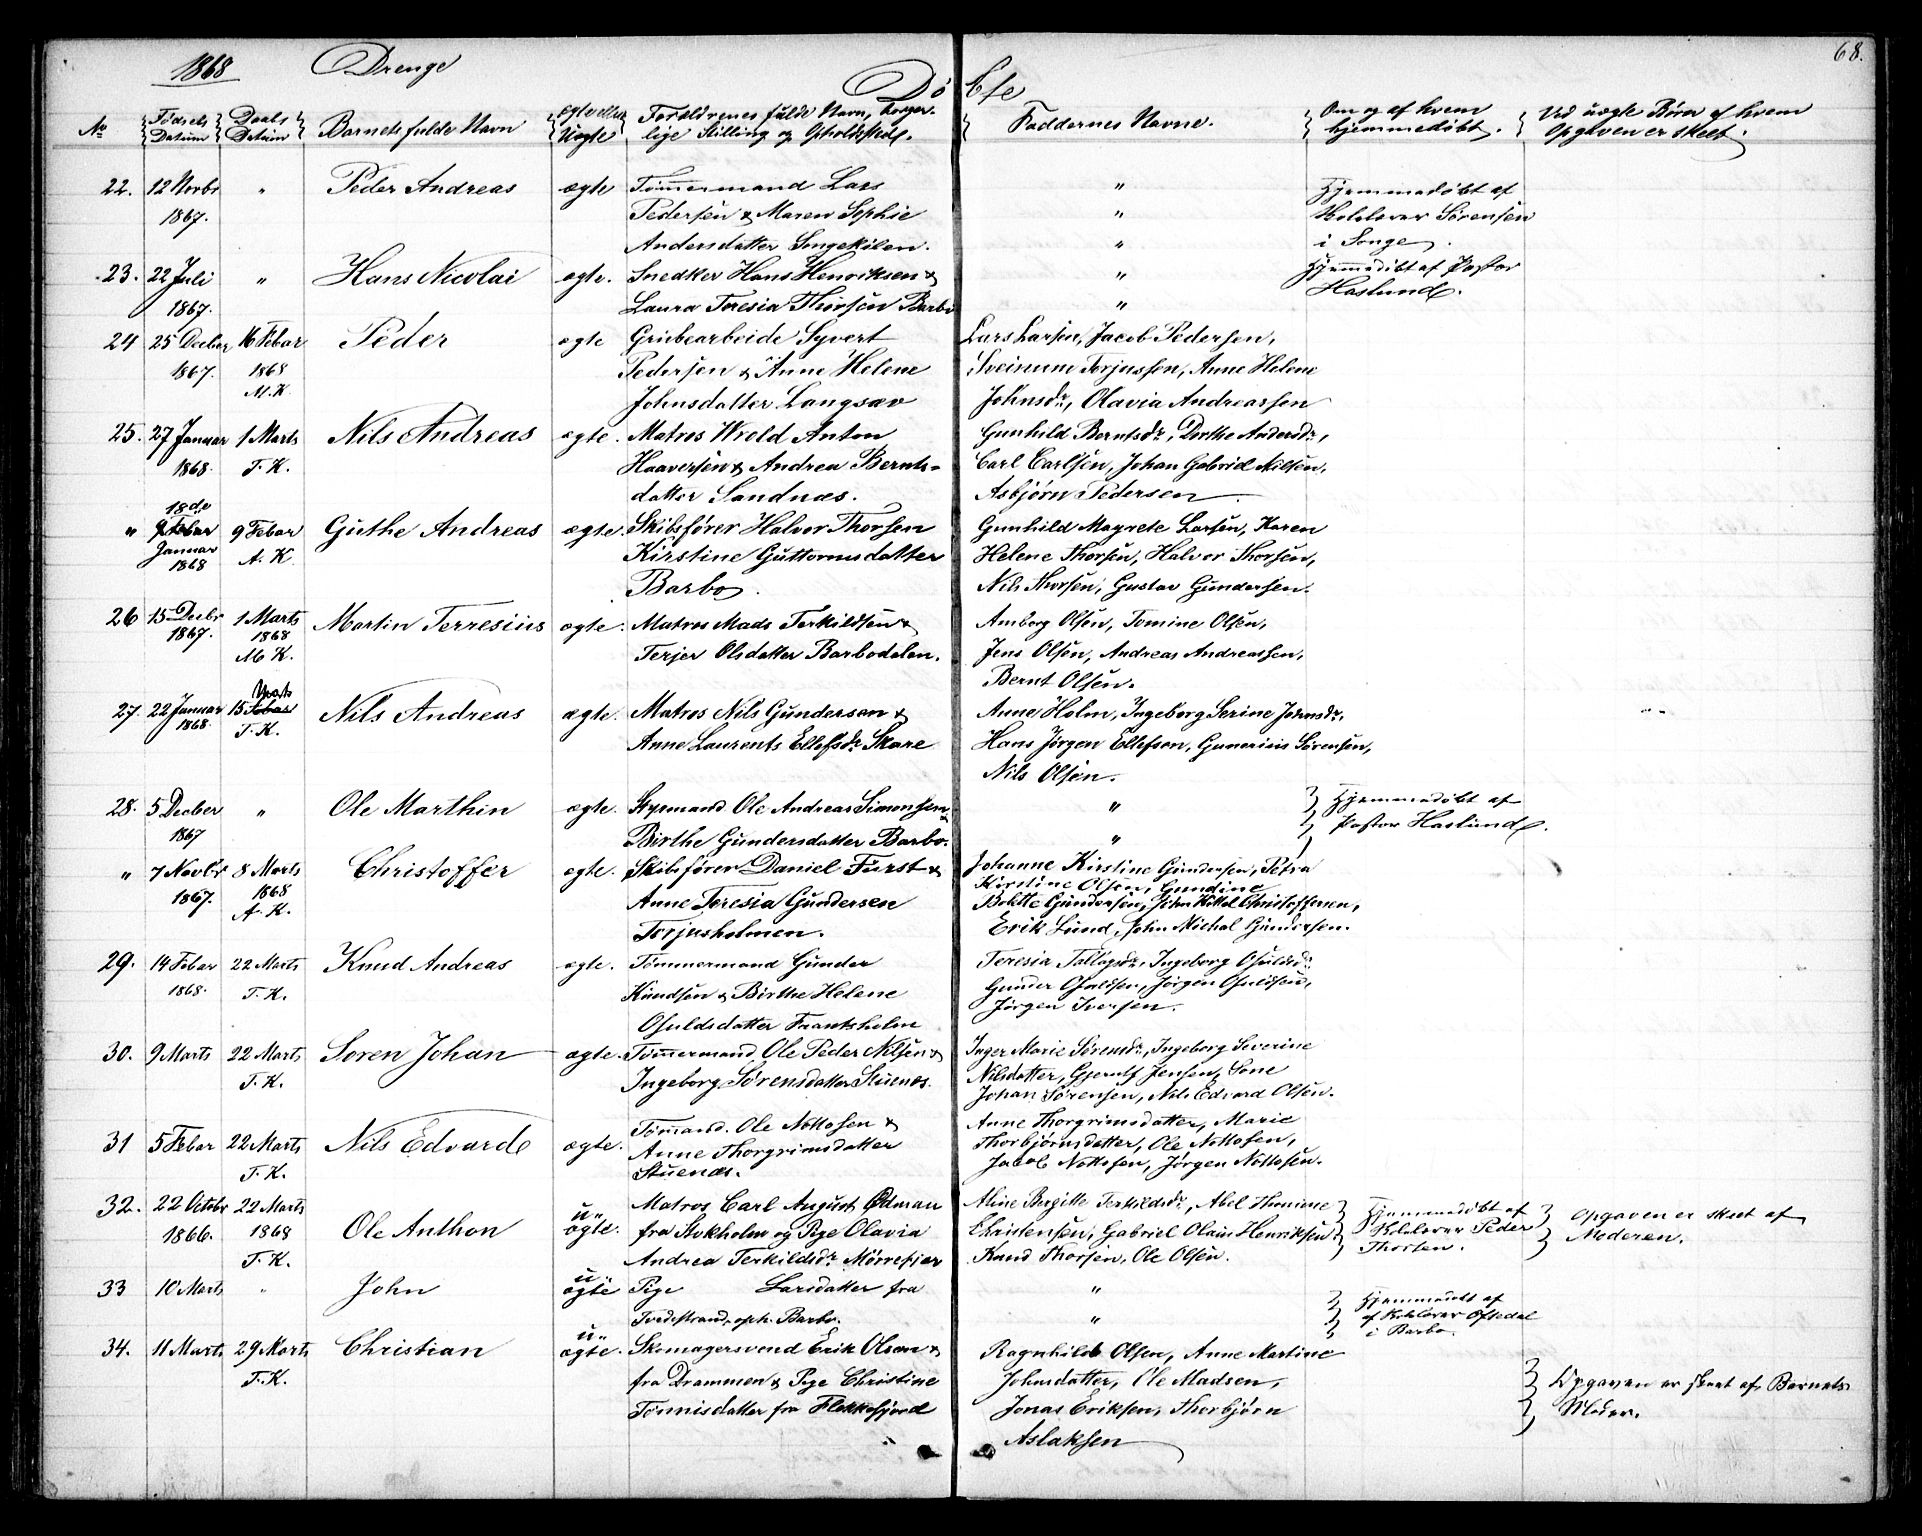 1868 Drenge Døbte 68.
No Fødsels Datum Daabs Datum Barnets fulde Navn Ægte eller Uægte Forældrenes fulde Navn, borgerlige Stilling og Opholdssted. Faddernes Navne. Om og af hvem hjemmedøbt. Ved uægte Børn af hvem Opgaven er skeet.
22. 12 Novbr " Peder Andreas ægte Tømmermand Lars " Hjemmedøbt af
1867. Pedersen & Maren Sophie " Kirkelærer Sørensen
Andersdatter Songekilen. " i Songe.
23. 22 Juli " Hans Nicolai ægte. Snedker Hans Henriksen & " Hjemmedøbt af Pastor
1867. Laura Teresia Thorsen Barbo " Haslund.
24 25 Decber 16 Febar Peder ægte Grubearbeide Syvert Lars Larsen, Jacob Pedersen,
1867. 1868 Pedersen & Anne Helene Sveinum Terjussen, Anne Helene
M.K. Johnsdatter Langsæv Johnsdr, Olavia Andreassen
25. 27 Januar 1 Marts Nils Andreas ægte. Matros Wrold Anton Gunhild Berntsdr, Dorthe Andersdr,
1868. T.K. Haaversen & Andrea Bernts- Carl Carlsen, Johan Gabriel Nilsen,
datter Sandnæs. Asbjørn Pedersen
18de
" 9 Febar 9 Febar Guthe Andreas ægte. Skibsfører Halvor Thorsen Gunhild Magrete Larsen, Karen
Januar A.K. Kirstine Guttormsdatter Helene Thorsen, Halvor Thorsen,
1868 Barbo. Nils Thorsen, Gustav Gundersen.
26 15 Decbr 1 Marts Martin Terresius ægte. Matros Mads Terkildsen & Amborg Olsen, Tomine Olsen,
1867. 1868 Terjer Olsdatter Barbodalen. Jens Olsen, Andreas Andreassen,
M.K. Bernt Olsen.
Marts
27. 22 Januar 15 Febar Nils Andreas ægte. Matros Nils Gundersen & Anne Holm, Ingeborg Serine Johnsdr,
1868. T.K. Anne Laurents Ellefsdr Skare Hans Jørgen Ellefsen, Gunerius Sørensen,
Nils Olsen.
28. 5 Decber " Ole Marthin ægte. Styrmand Ole Andreas Simonsen & " Hjemmedøbt af
1867 Birthe Gundersdatter Barbo. " Pastor Haslund.
" 7 Novbr 8 Marts Christoffer ægte. Skibsfører Daniel Fürst & Johanne Kirstine Gundersen, Petra
1867. 1868 Anne Teresia Gundersen Kirstine Olsen, Gundine
A.K. Torjusholmen. Bolette Gundersen, John Kittel Christoffersen,
Erik Lund, John Michal Gundersen.
29. 14 Febar 22 Marts Knud Andreas ægte. Tømmermand Gunder Teresia Tallagsdr, Ingeborg Osuldsdr
1868. T.K. Knudsen & Birthe Helene Gunder Osuldsen, Jørgen Osuldsen,
Osuldsdatter Frantsholm Jørgen Iversen.
30. 9 Marts 22 Marts Søren Johan ægte. Tømmermand Ole Peder Nilsen & Inger Marie Sørensdr, Ingeborg Severine
T.K. Ingeborg Sørensdatter Stuenes. Nilsdatter, Gjerulf Jensen, Sone
Johan Sørensen, Nils Edvard Olsen.
31 5 Febar 22 Marts Nils Edvarde ægte. Tømmand. Ole Nottosen & Anne Thorgrimsdatter, Marie
T.K. Anne Thorgrimsdatter Thorbjørnsdatter, Ole Nottosen,
Stuenæs. Jacob Nottosen, Jørgen Nottosen.
32. 22 Octobr 22 Marts Ole Anthon u"ægte. Matros Carl August Ødman Aline Bergitte Terkildsdr, Abel Thomine Hjemmedøbt af Opgaven er skeet af
1866. 1868 fra Stokholm og Pige Olavia Christensen, Gabriel Olaus Henriksen Kirkelærer Peder Moderen.
T.K. Andrea Terkildsdr Mørrefjær Knud Thorsen, Ole Olsen. Thorsen.
33 10 Marts " John u"ægte Pige Larsdatter fra " Hjemmedøbt af
Tvedestrand, oph. Barbo. " af Kirkelærer Oftedal
i Barbo.
34. 11 Marts 29 Marts Christian u"ægte. Skomagersvend Erik Olsen & Ragnhild Olsen, Anne Martine
T.K. fra Drammen & Pige Christine Johnsdatter, Ole Madsen, Opgaven er skeet af Barnets
Tønnisdatter fra Flekkefjord Jonas Eriksen, Thorbjørn Moder.
Aslaksen